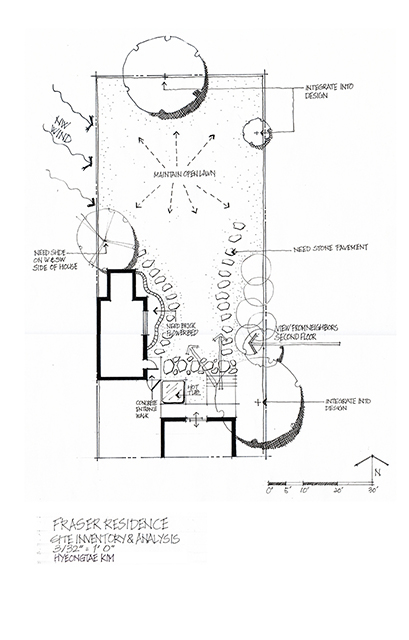 INTEGRATE INTO
DESIGN
NW
WIND
MAINTAIN OPEN LAWN
NEED SHDE
ON W & SW
SIDE OF HOUSE
NEED STONE PAVEMENT
NEED BRICK
FLOWERBED
VIEW FROM NEIGHBORS
SECOND FLOOR
CONCRETE
ENTRANCE
WALK
HOT
TUB
INTEGRATE INTO
DESIGN
N
0' 5' 10' 20' 30'
FRASER RESIDENCE
SITE INVENTORY & ANALYSIS
3/32" = 1' 0"
HYEONGTAE KIM